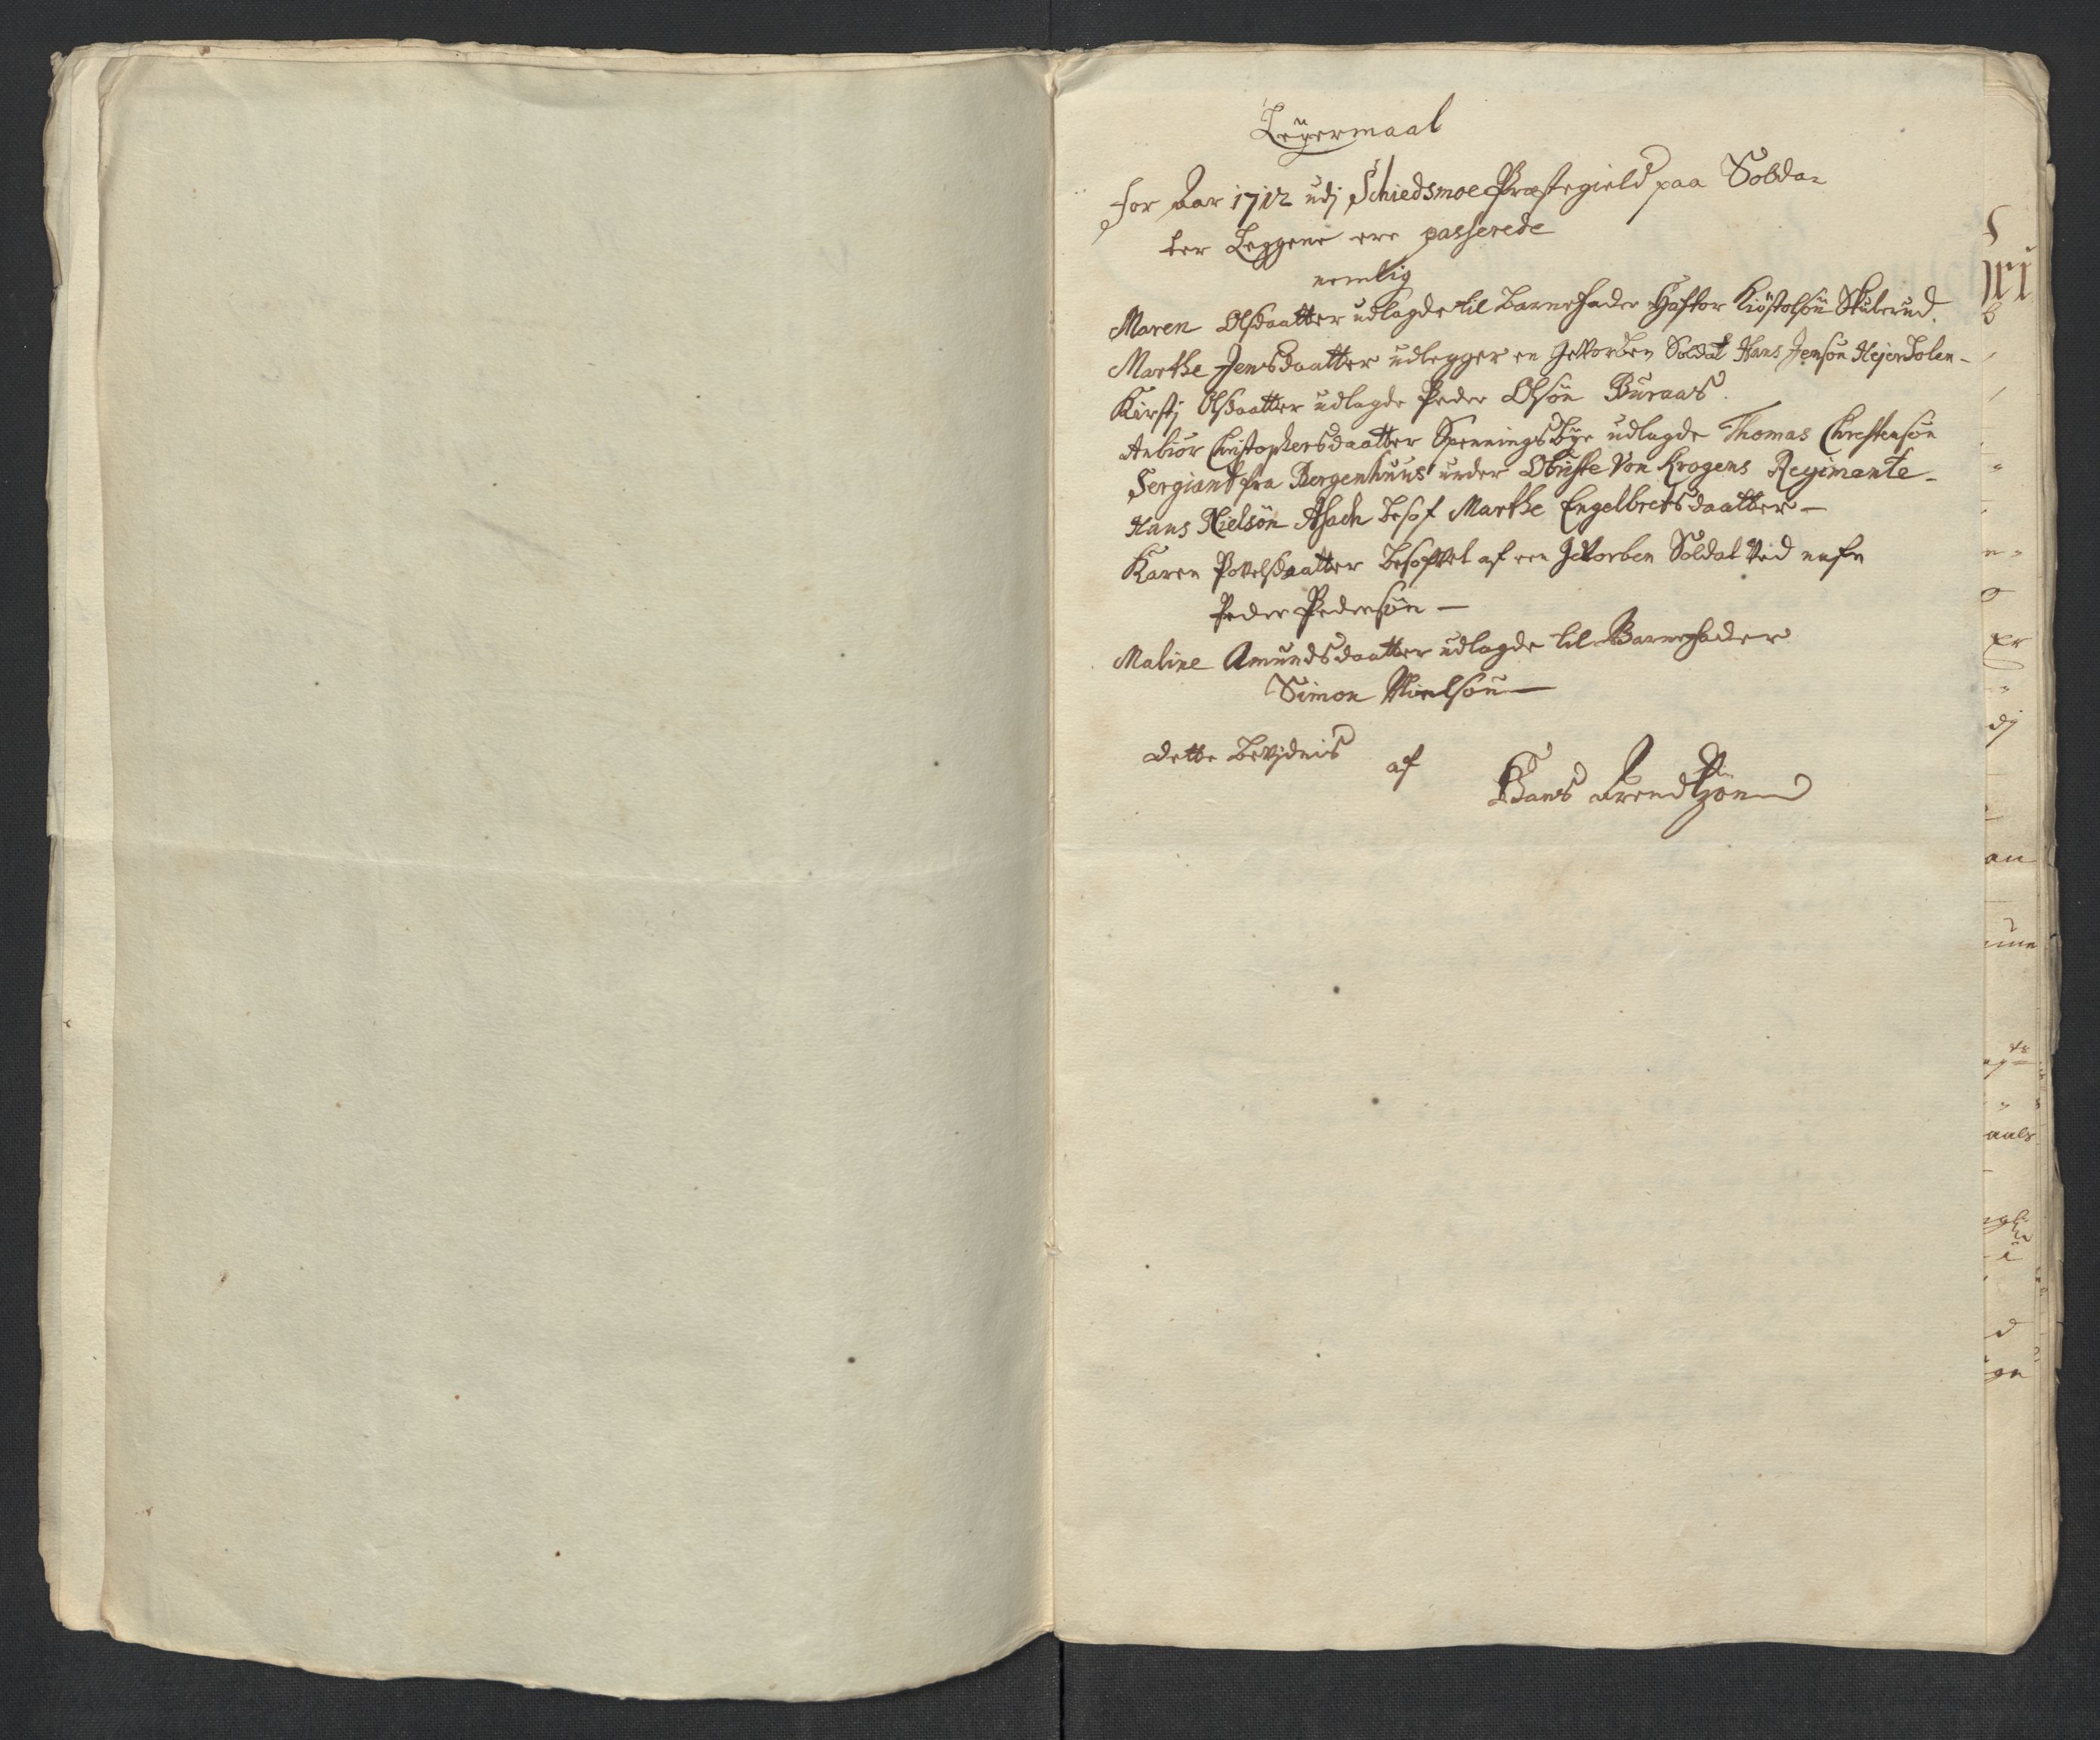 Leyermaal
for Aar 1712 udj Schiedsmoe Præstegield paa Solda-
ter Leggene ere passerede
nemlig
Maren Olsdaatter udlagde til barnefader Haftor Kiöstolsön Skulerud.
Marthe Jensdaatter udlegger en Geworben Soldat Hans Jensön Hejerdolen-
Kirstj Olsdaatter udlagde Peder Olsön Buraas.
Anbiör Christophersdaatter Spenningsbye udlagde Thomas Chrestensön
Sergiant fra Bergenhuus under Obriste Von Krogens Regimente-
Hans Nielsön Asach besof Marthe Engelbretsdaatter-
Karen Povelsdaatter besofvet af een Geworben Soldat Ved nafn
Peder Pedersön-
Maline Amundsdaatter udlagde til Barnefader
Simon Nielsön-
dette bevidnis af
Hans Arendtzön